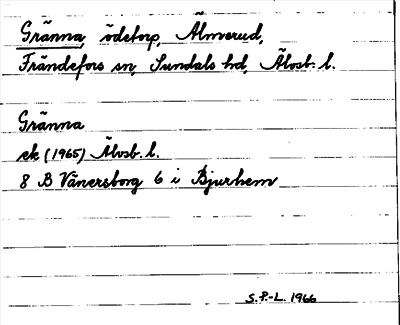 Gränna, ödetorp, Älmerud,
Frändefors sn, Sundals hd, Älvsb. l.
Gränna
ek (1965) Älvsb. l.
8 B Vänersborg 6 i Bjurhem
S.P.-L. 1966